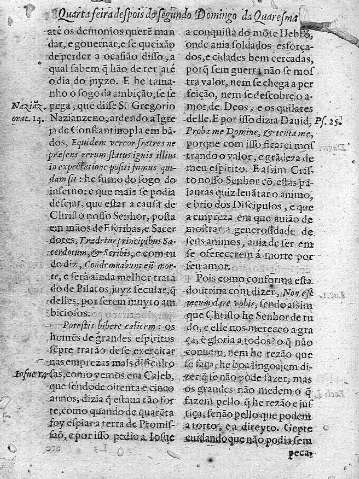 Quarta feira despois do segundo Domingo da Quaresma
até os demonios querẽ man
dar, e gouernar, e se queixão
de perder a ocasião disso, a
qual sabem q̃ hão de ter até
o dia do juyzo. E he taman
ho o fogo da ambição, se se
pega, que disse S. Gregorio
Nazianzeno, ardendo a Igre
ja de Constantinopla em bã
dos, Equidem vereor fratres ne
præsens rerum status ignis illius
in expectatione positi fumus qui
dam sit: he fumo do fogo do
inferno; e que mais se podia
desejar, que estar a causa de
Christo nosso Senhor, posta
em mãos de Escribas, e Sacer
dotes, Tradetur principibus Sa
cerdotum, & Scribis, e com tu
do diz, Condemnabunt eũ mor
te, e será ainda melhor trata
do de Pilatos juyz secular, q̃
delles, por serem muyto am
biciosos.
Potestis bibere calicem: os
homẽs de grandes espiritos
sẽpre tratão de se exercitar
nas emprezas mais difficulto
sas, como vemos em Caleb,
que sẽdo de oitenta e cinco
annos, dizia q̃ estaua tão for
te, como quando de quarẽta
foy espiar a terra de Promis
são, e por isso pedio a Iosue
Naziãz.
orat. 14.
Iosue 14.
a conquista do mõte Hebrõ,
onde auia soldados esforça
dos, e cidades bem cercadas,
porq̃ sem guerra não se mos
tra valor, nem se chega a per
feição, nem se descobre o a
mor de Deos, e os quilates
delle. E por isso dizia Dauid,
Proba me Domine, & tenta me,
porque com isso ficarei mos
trando o valor, e grãdeza de
meu espirito. E assim Cris-
to nosso Senhor cõ estas pa
lauras quiz leuãtar o animo,
e brio dos Discipulos, e que
a empreza em que auião de
mostrar a generosidade de
seus animos, auia de ser em
se offerecerẽ á morte por
seu amor.
Pois como conforma esta
doutrina com dizer, Non est
meum dare vobis, sendo assim
que Christo he Senhor de tu
do, e elle nos merece o a gra
ça, e gloria a todos? o q̃ não
conuem, nem he rezão que
se faça, he boa lingoajem di
zer, q̃ se não póde fazer, mas
os grandes não medem o q̃
fazem pello q̃ he rezão e jus
tiça, senão pello que podem
a torto, e a direyto. Gẽpre
cuidando que não podia sem
peca-
Psal. 25.